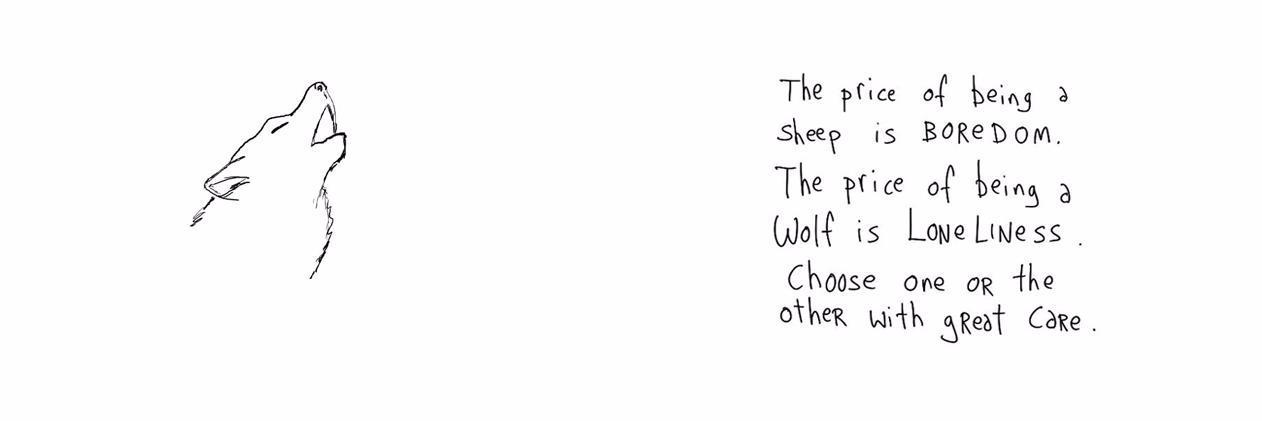 The price of being a
sheep is BOReDOM.
The price of being a
Wolf is LONeLINess.
Choose one OR the
otheR with gReat CaRe.